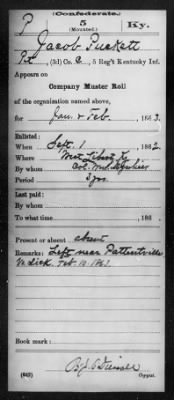 (Confederate.)
P 5 Ky.
(Mounted.)
Jacob Puckett
Pt, (2d) Co. C, 5 Reg't Kentucky Inf.
Appears on
Company Muster Roll
of the organization named above,
for Jan & Feb, 1863.
Enlisted:
When Sept. 1, 1862.
Where West Liberty Ky
By whom Col. Wm.
Period 3 yrs.
Last paid:
By whom
To what time , 186 .
Present or absent absent
Remarks: Left near
Va Sick. Feb. 10. 1863
Book mark:
(642) Copyist.